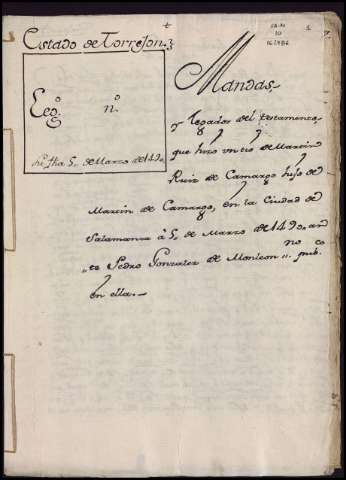 Estado de Torrejon.
Leg.º n.º
fha 5, de Marzo de 1490
Mandas,
y legados del testamento,
que hizo un tio de Martin
Ruiz de Camargo hijo de
Martin de Camargo, en la Ciudad de
Salamanca à 5, de Marzo de 1490, an
te Pedro Gonzalez de Monleon no co
pub.
en ella.